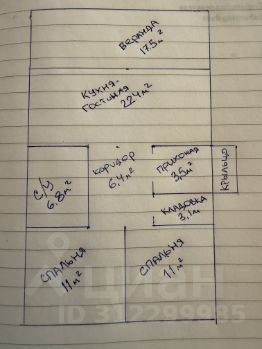 ВЕРАНДА
17.5 м²
КУХНЯ-
ГОСТИНАЯ
22.4 м²
КОРИДОР
6,4 м²
ПРИХОЖАЯ
3,5 м²
КРЫЛЬЦО
С/У
6,8 м²
КЛАДОВКА
3,1 м²
СПАЛЬНЯ
11 м²
СПАЛЬНЯ
11 м²
ЦИАН
ID 312299985